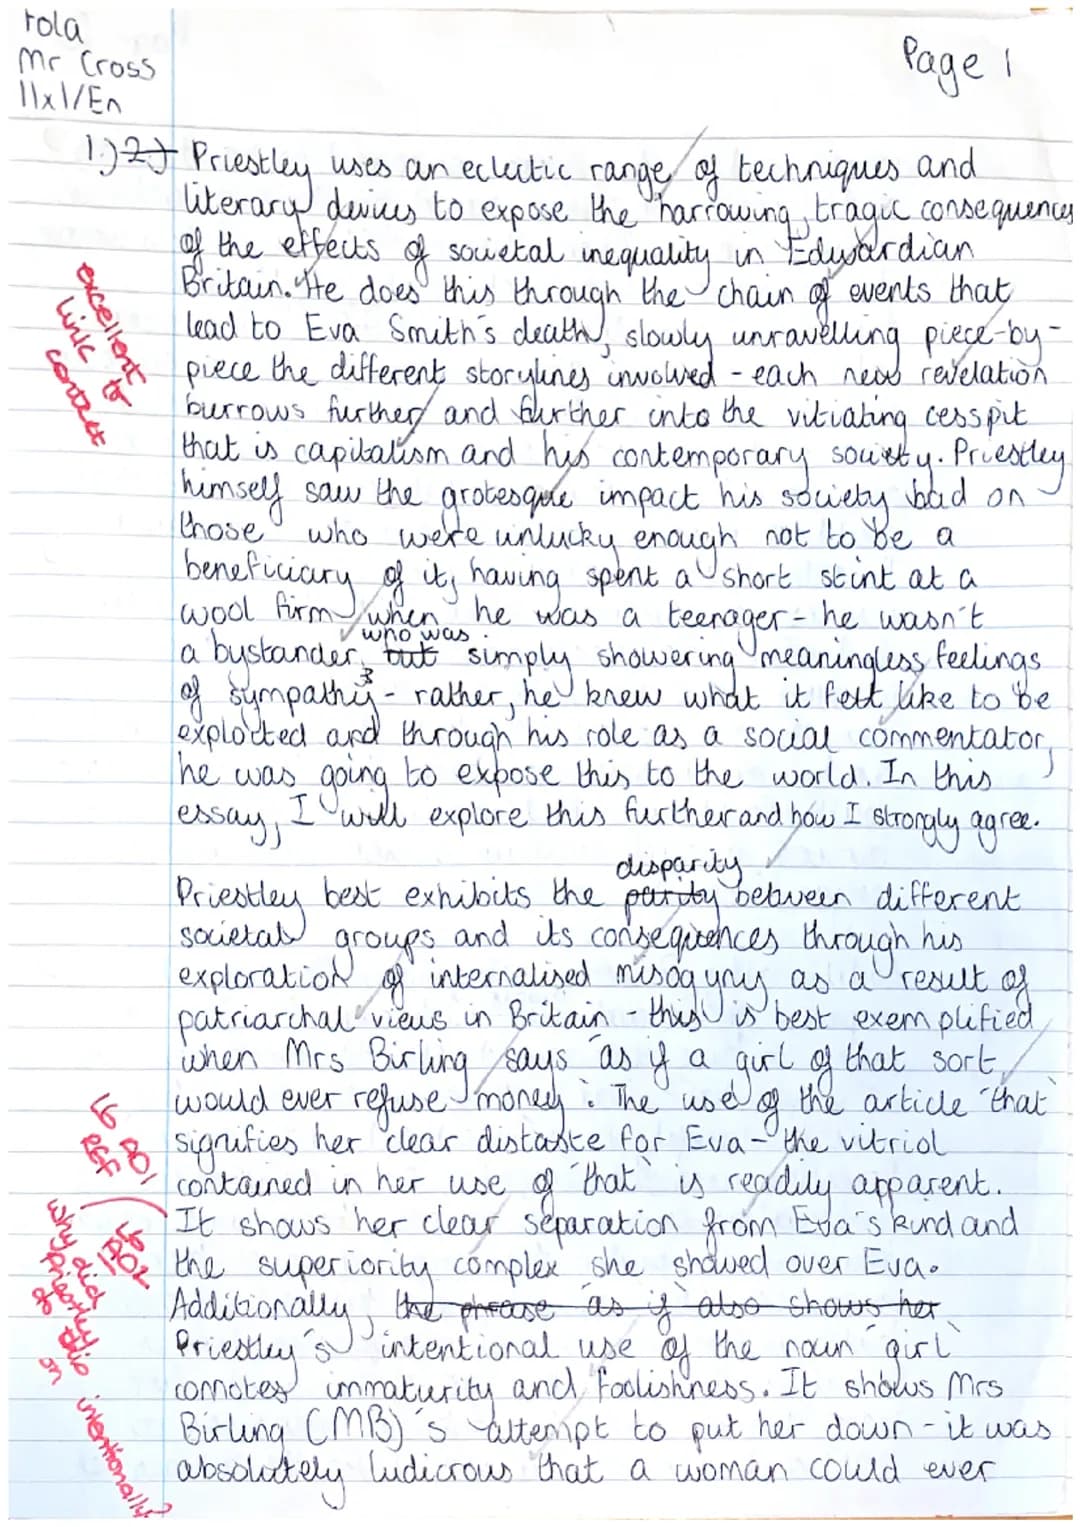 rola
Mr Cross
11x1/En
Page 1
1.) 2.) Priestley uses an eclectic range of techniques and
literary devices to expose the harrowing, tragic consequences
of the effects of societal inequality in Edwardian
Britain. He does this through the chain of events that
lead to Eva Smith's death, slowly unravelling piece-by-
piece the different storylines involved - each new revelation
burrows further and further into the vitiating cesspit
that is capitalism and his contemporary society. Priestley
himself saw the grotesque impact his society had on
those who were unlucky enough not to be a
beneficiary of it, having spent a short stint at a
wool firm when he was a teenager - he wasn't
who was
a bystander, but simply showering meaningless feelings
of sympathy - rather, he knew what it felt like to be
exploited and through his role as a social commentator,
he was going to expose this to the world. In this
essay, I will explore this further and how I strongly agree.
excellent
link to
context
disparity
Priestley best exhibits the parity between different
societal groups and its consequences through his
exploration of internalised misogyny as a result of
patriarchal views in Britain - this is best exemplified
when Mrs Birling says "as if a girl of that sort
would ever refuse money". The use of the article "that"
signifies her clear distaste for Eva - the vitriol
contained in her use of "that" is readily apparent.
It shows her clear separation from Eva's kind and
the superiority complex she showed over Eva.
Additionally, the phrase "as if" also shows her
Priestley's intentional use of the noun "girl"
connotes immaturity and foolishness. It shows Mrs
Birling (MB)'s attempt to put her down - it was
absolutely ludicrous that a woman could ever
why did
Priestley do
this
intentionally?